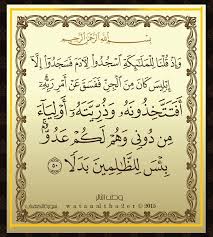 بسم الله الرحمن الرحيم
وَإِذْ قُلْنَا لِلْمَلَٰٓئِكَةِ ٱسْجُدُوا۟ لِءَادَمَ فَسَجَدُوٓا۟ إِلَّآ
إِبْلِيسَ كَانَ مِنَ ٱلْجِنِّ فَفَسَقَ عَنْ أَمْرِ رَبِّهِۦٓ
أَفَتَتَّخِذُونَهُۥ وَذُرِّيَّتَهُۥٓ أَوْلِيَآءَ
مِن دُونِى وَهُمْ لَكُمْ عَدُوٌّۢ
بِئْسَ لِلظَّٰلِمِينَ بَدَلًا ٥٠
watanaltha2er © 2015